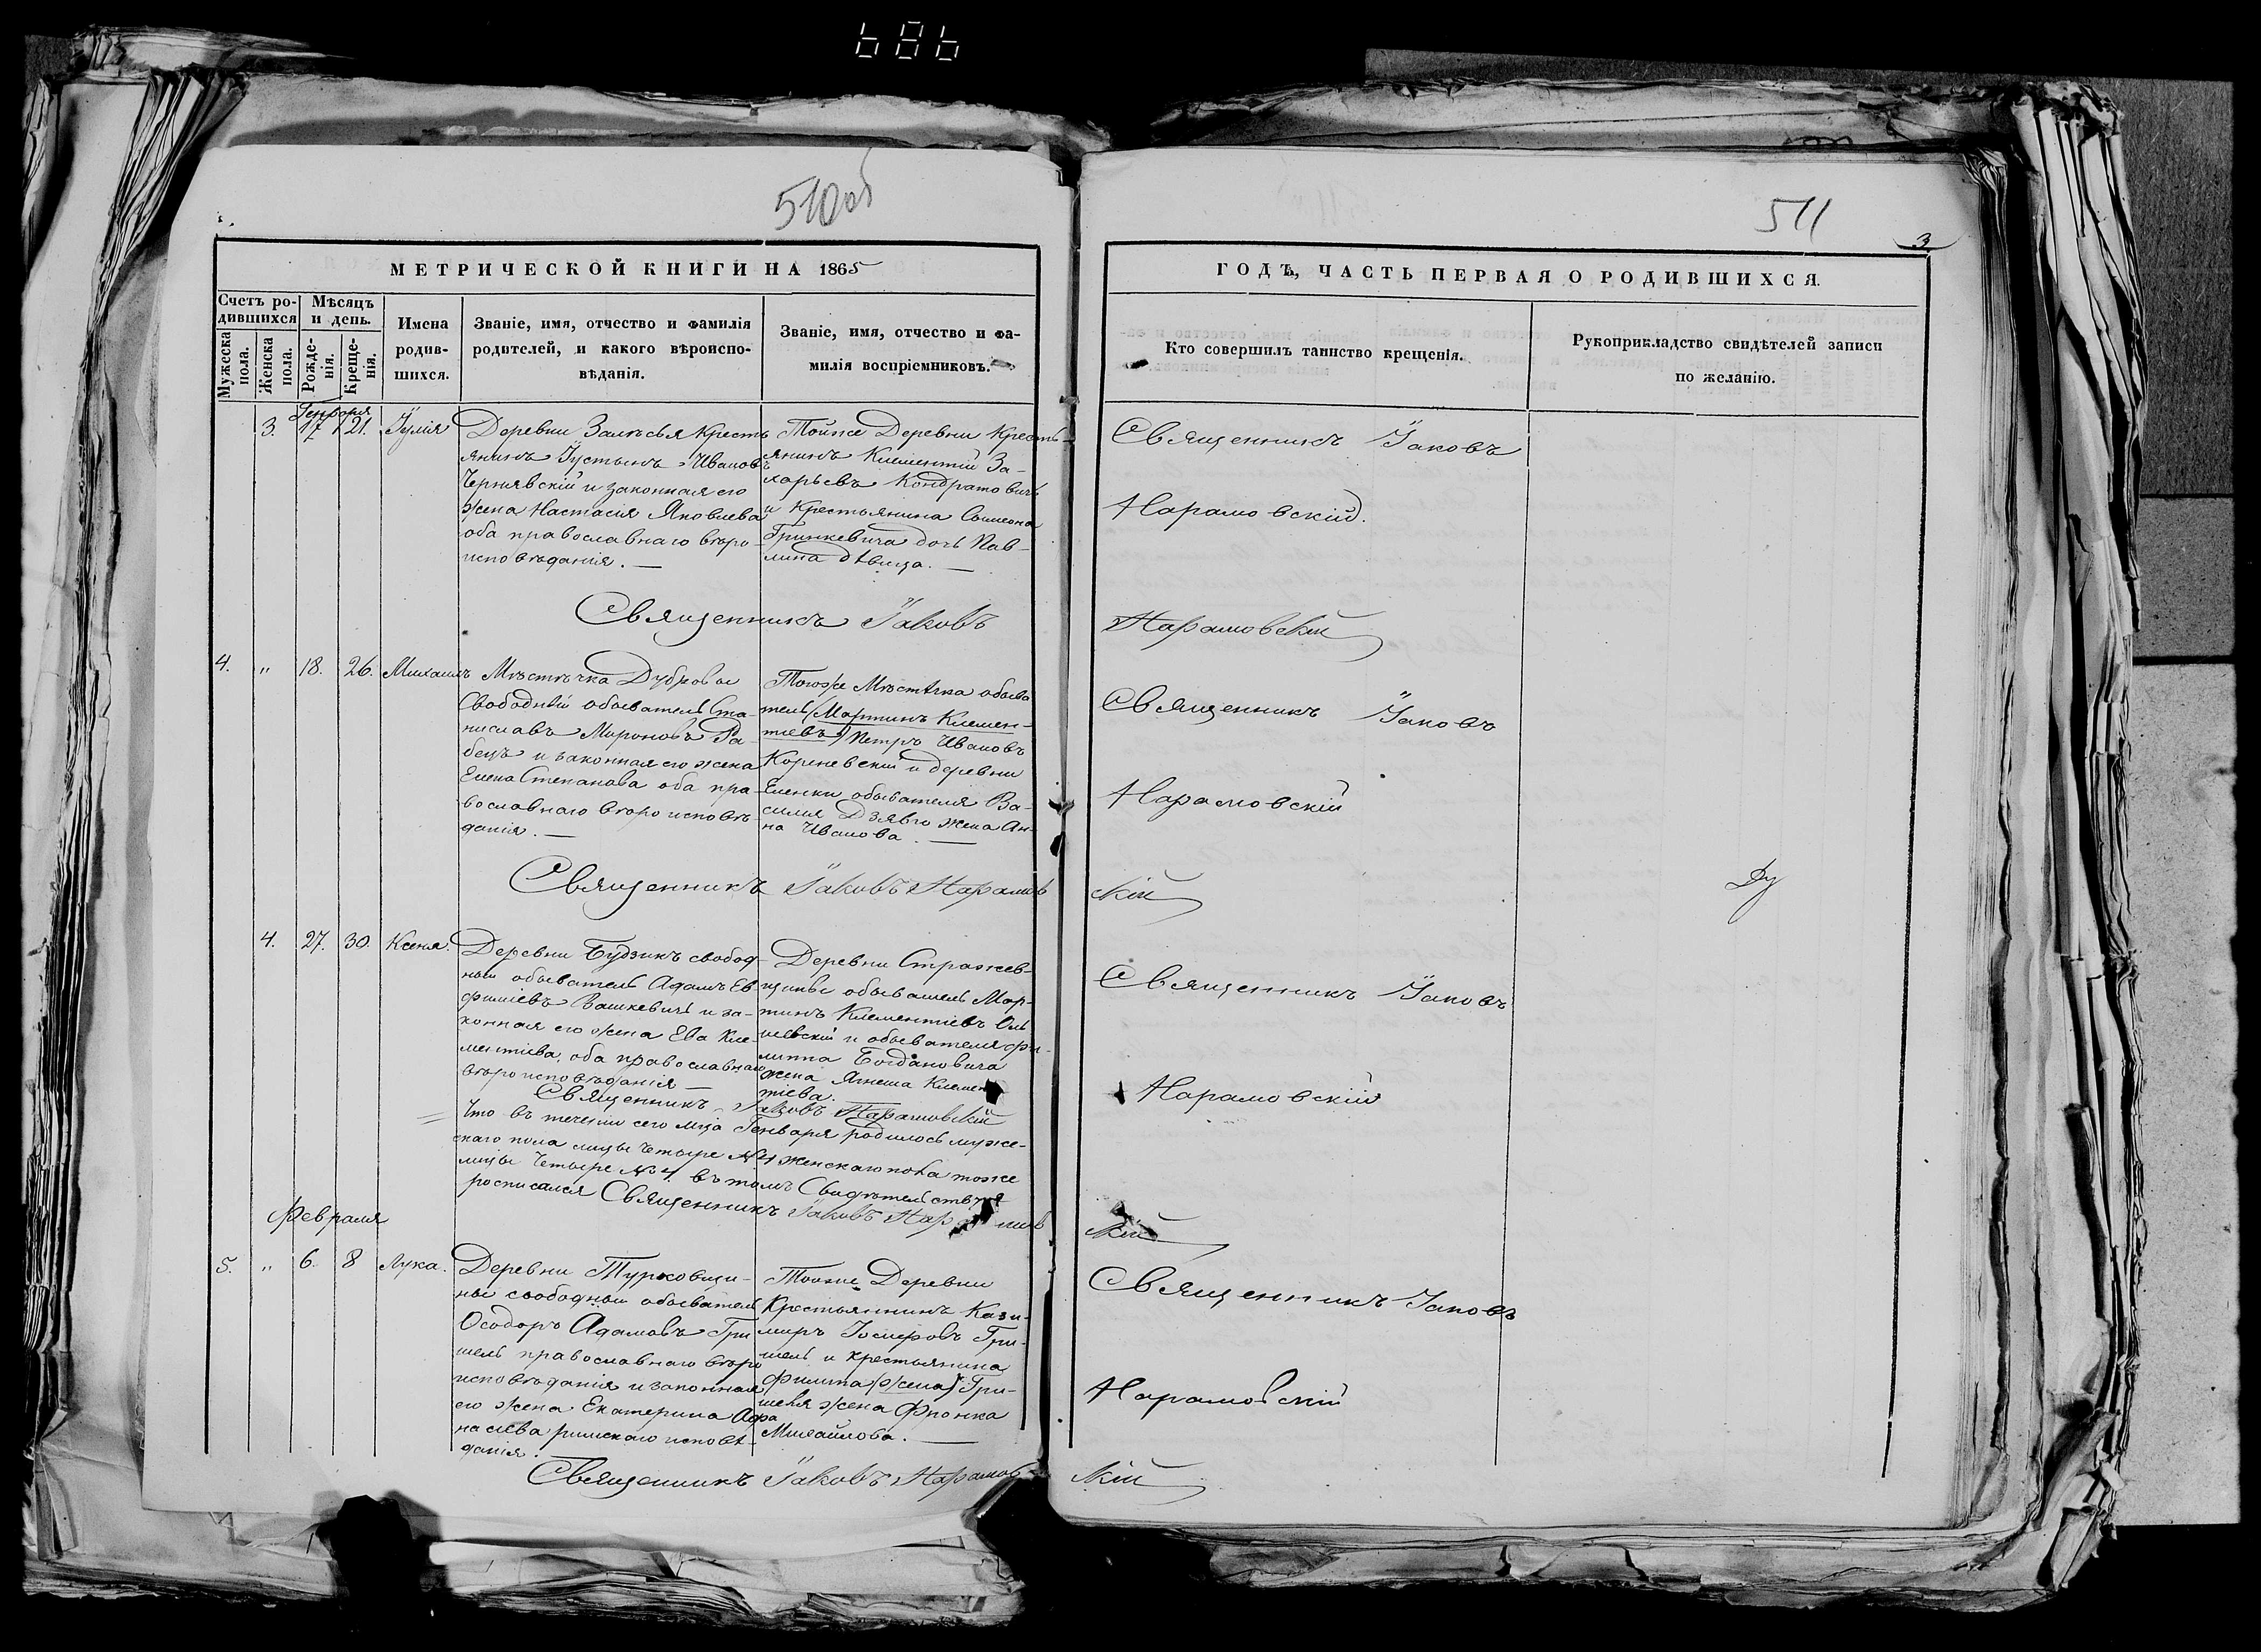 686
510об
511
3
МЕТРИЧЕСКОЙ КНИГИ НА 1865
ГОДЪ, ЧАСТЬ ПЕРВАЯ О РОДИВШИХСЯ.
Счетъ родившихся
Мужеска пола.
Женска пола.
Мѣсяцъ и день.
Рожденія.
Крещенія.
Имена родившихся.
Званіе, имя, отчество и фамилія
родителей, и какого вѣроиспо-
вѣданія.
Званіе, имя, отчество и фа-
милія воспріемниковъ.
Кто совершилъ таинство крещенія.
Рукоприкладство свидѣтелей записи
по желанію.
Генваря
3. 17 21. Іулія
Деревни Залѣсья Кресть
янинъ Іустынъ Ивановъ
Чернявскій и законная его
жена Настасія Яковлева
оба православнаго вѣро-
исповѣданія.
Тойже Деревни Кресть-
янинъ Климентій За-
харьевъ Кондратовичъ
и Крестьянина Симеона
Гринкевича дочь Пав-
лина дѣвица.
Священникъ Іаковъ
Нарамовскій.
Священникъ Іаковъ
Нарамовскій
4. " 18. 26. Михаилъ
Мѣстѣчка Дубровы
Свободный обыватель Ста-
ниславъ Мироновъ Ра-
бецъ и законная его жена
Елена Степанова оба пра-
вославнаго вѣроисповѣ-
данія.
Тогоже Мѣстѣчка обыва
тель (Мартинъ Клемен-
тіевъ) Петръ Ивановъ
Кореневскій и деревни
Еленки обывателя Ва-
силія Дзявго жена Ан-
на Иванова.
Священникъ Іаковъ
Нарамовскій
Священникъ Іаковъ Нарамов
скій
4. 27. 30. Ксенія.
Деревни Будзикъ свобод-
ный обыватель Адамъ Ев
фиміевъ Вашкевичъ и за-
конная его жена Ева Кле-
ментіева, оба православнаго
вѣроисповѣданія
Деревни Стражев-
щины обыватель Мар-
тинъ Клементіевъ Оль
шевскій и обывателя Фи-
липпа Богдановича
жена Ягнеша Клемен
тіева.
Священникъ Іаковъ
Нарамовскій
Священникъ Іаковъ Нарамовскій
Что въ теченіи сего мца Генваря родилось муже-
скаго пола лицы четыре №4 женскаго пола тоже
лицы четыре №4 въ томъ Свидѣтельствуя
росписался Священникъ Іаковъ Нарамов
скій
Февраля
5. " 6. 8 Лука.
Деревни Турковщи-
ны свободный обыватель
Ѳсодоръ Адамовъ Гри
шель православнаго вѣро
исповѣданія и законная
его жена Екатерина Афа
насіева римскаго исповѣ-
данія.
Тойже Деревни
Крестьянинъ Кази-
миръ Іосифовъ Гри-
шель и крестьянина
Филипа (жена) Гри-
шеля жена Франка
Михайлова.
Священникъ Іаковъ
Нарамовскій
Священникъ Іаковъ Нарамов
скій